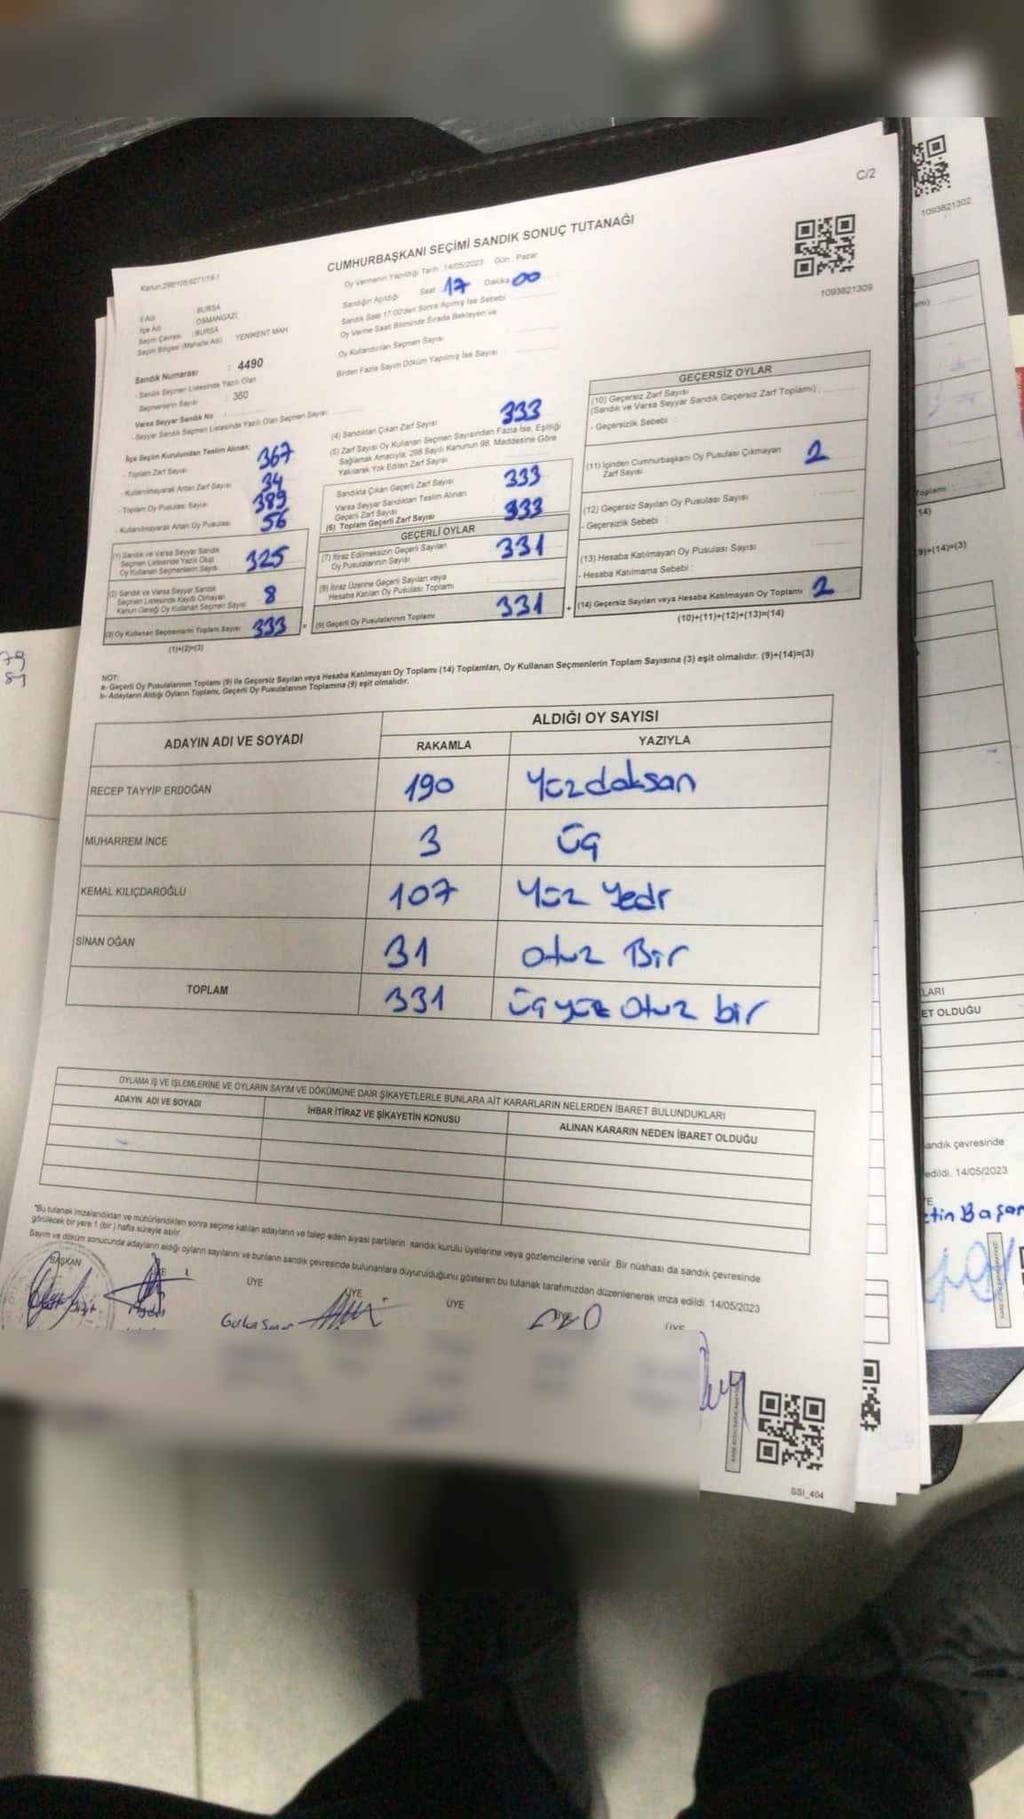 C/2
1093821302
CUMHURBAŞKANI SEÇİMİ SANDIK SONUÇ TUTANAĞI
1093821309
Kanun:298/105,6271/19-1
Oy Vermenin Yapıldığı Tarih :14/05/2023 Gün : Pazar
Sandığın Açıldığı Saat : 17 Dakika 00
Sandık Saat 17:00'den Sonra Açılmış İse Sebebi
Oy Verme Saat Bitiminde Sırada Bekleyen ve
Oy Kullandırılan Seçmen Sayısı
Birden Fazla Sayım Döküm Yapılmış İse Sayısı :
İl Adı : BURSA
İlçe Adı : OSMANGAZİ
Seçim Çevresi : BURSA
Seçim Bölgesi (Mahalle Adı) YENİKENT MAH
Sandık Numarası : 4490
- Sandık Seçmen Listesinde Yazılı Olan
Seçmenlerin Sayısı : 360
Varsa Seyyar Sandık No :
- Seyyar Sandık Seçmen Listesinde Yazılı Olan Seçmen Sayısı :
İlçe Seçim Kurulundan Teslim Alınan;
- Toplam Zarf Sayısı : 367
- Kullanılmayarak Artan Zarf Sayısı : 34
- Toplam Oy Pusulası Sayısı : 389
- Kullanılmayarak Artan Oy Pusulası : 56
(1) Sandık ve Varsa Seyyar Sandık
Seçmen Listesinde Yazılı Olup
Oy Kullanan Seçmenlerin Sayısı 325
(2) Sandık ve Varsa Seyyar Sandık
Seçmen Listesinde Kaydı Olmayan
Kanun Gereği Oy Kullanan Seçmen Sayısı 8
(3) Oy Kullanan Seçmenlerin Toplam Sayısı 333
(1)+(2)=(3)
(4) Sandıktan Çıkan Zarf Sayısı 333
(5) Zarf Sayısı Oy Kullanan Seçmen Sayısından Fazla İse, Eşitliği
Sağlamak Amacıyla, 298 Sayılı Kanunun 98. Maddesine Göre
Yakılarak Yok Edilen Zarf Sayısı
Sandıkta Çıkan Geçerli Zarf Sayısı 333
Varsa Seyyar Sandıktan Teslim Alınan
Geçerli Zarf Sayısı
(6) Toplam Geçerli Zarf Sayısı 333
GEÇERLİ OYLAR
(7) İtiraz Edilmeksizin Geçerli Sayılan
Oy Pusulalarının Sayısı 331
(8) İtiraz Üzerine Geçerli Sayılan veya
Hesaba Katılan Oy Pusulası Toplamı
(9) Geçerli Oy Pusulalarının Toplamı 331
GEÇERSİZ OYLAR
(10) Geçersiz Zarf Sayısı
(Sandık ve Varsa Seyyar Sandık Geçersiz Zarf Toplamı) :
- Geçersizlik Sebebi :
(11) İçinden Cumhurbaşkanı Oy Pusulası Çıkmayan
Zarf Sayısı 2
(12) Geçersiz Sayılan Oy Pusulası Sayısı
- Geçersizlik Sebebi :
(13) Hesaba Katılmayan Oy Pusulası Sayısı
- Hesaba Katılmama Sebebi :
(14) Geçersiz Sayılan veya Hesaba Katılmayan Oy Toplamı 2
(10)+(11)+(12)+(13)=(14)
NOT:
a- Geçerli Oy Pusulalarının Toplamı (9) ile Geçersiz Sayılan veya Hesaba Katılmayan Oy Toplamı (14) Toplamları, Oy Kullanan Seçmenlerin Toplam Sayısına (3) eşit olmalıdır. (9)+(14)=(3)
b- Adayların Aldığı Oyların Toplamı, Geçerli Oy Pusulalarının Toplamına (9) eşit olmalıdır.
ADAYIN ADI VE SOYADI
ALDIĞI OY SAYISI
RAKAMLA YAZIYLA
RECEP TAYYİP ERDOĞAN 190 Yüzdoksan
MUHARREM İNCE 3 üç
KEMAL KILIÇDAROĞLU 107 Yüz Yedi
SİNAN OĞAN 31 otuz Bir
TOPLAM 331 üçyüz otuz bir
OYLAMA İŞ VE İŞLEMLERİNE VE OYLARIN SAYIM VE DÖKÜMÜNE DAİR ŞİKAYETLERLE BUNLARA AİT KARARLARIN NELERDEN İBARET BULUNDUKLARI
ADAYIN ADI VE SOYADI İHBAR İTİRAZ VE ŞİKAYETİN KONUSU ALINAN KARARIN NEDEN İBARET OLDUĞU
"Bu tutanak imzalandıktan ve mühürlendikten sonra seçime katılan adayların ve talep eden siyasi partilerin sandık kurulu üyelerine veya gözlemcilerine verilir .Bir nüshası da sandık çevresinde
görülecek bir yere 1 (bir ) hafta süreyle asılır
Sayım ve döküm sonucunda adayların aldığı oyların sayılarını ve bunların sandık çevresinde bulunanlara duyurulduğunu gösteren bu tutanak tarafımızdan düzenlenerek imza edildi. 14/05/2023
BAŞKAN ÜYE ÜYE ÜYE ÜYE ÜYE
SSI_404
79
81
14)
9)+(14)=(3)
LARI
ET OLDUĞU
andık çevresinde
edildi. 14/05/2023
YE
etin Başar